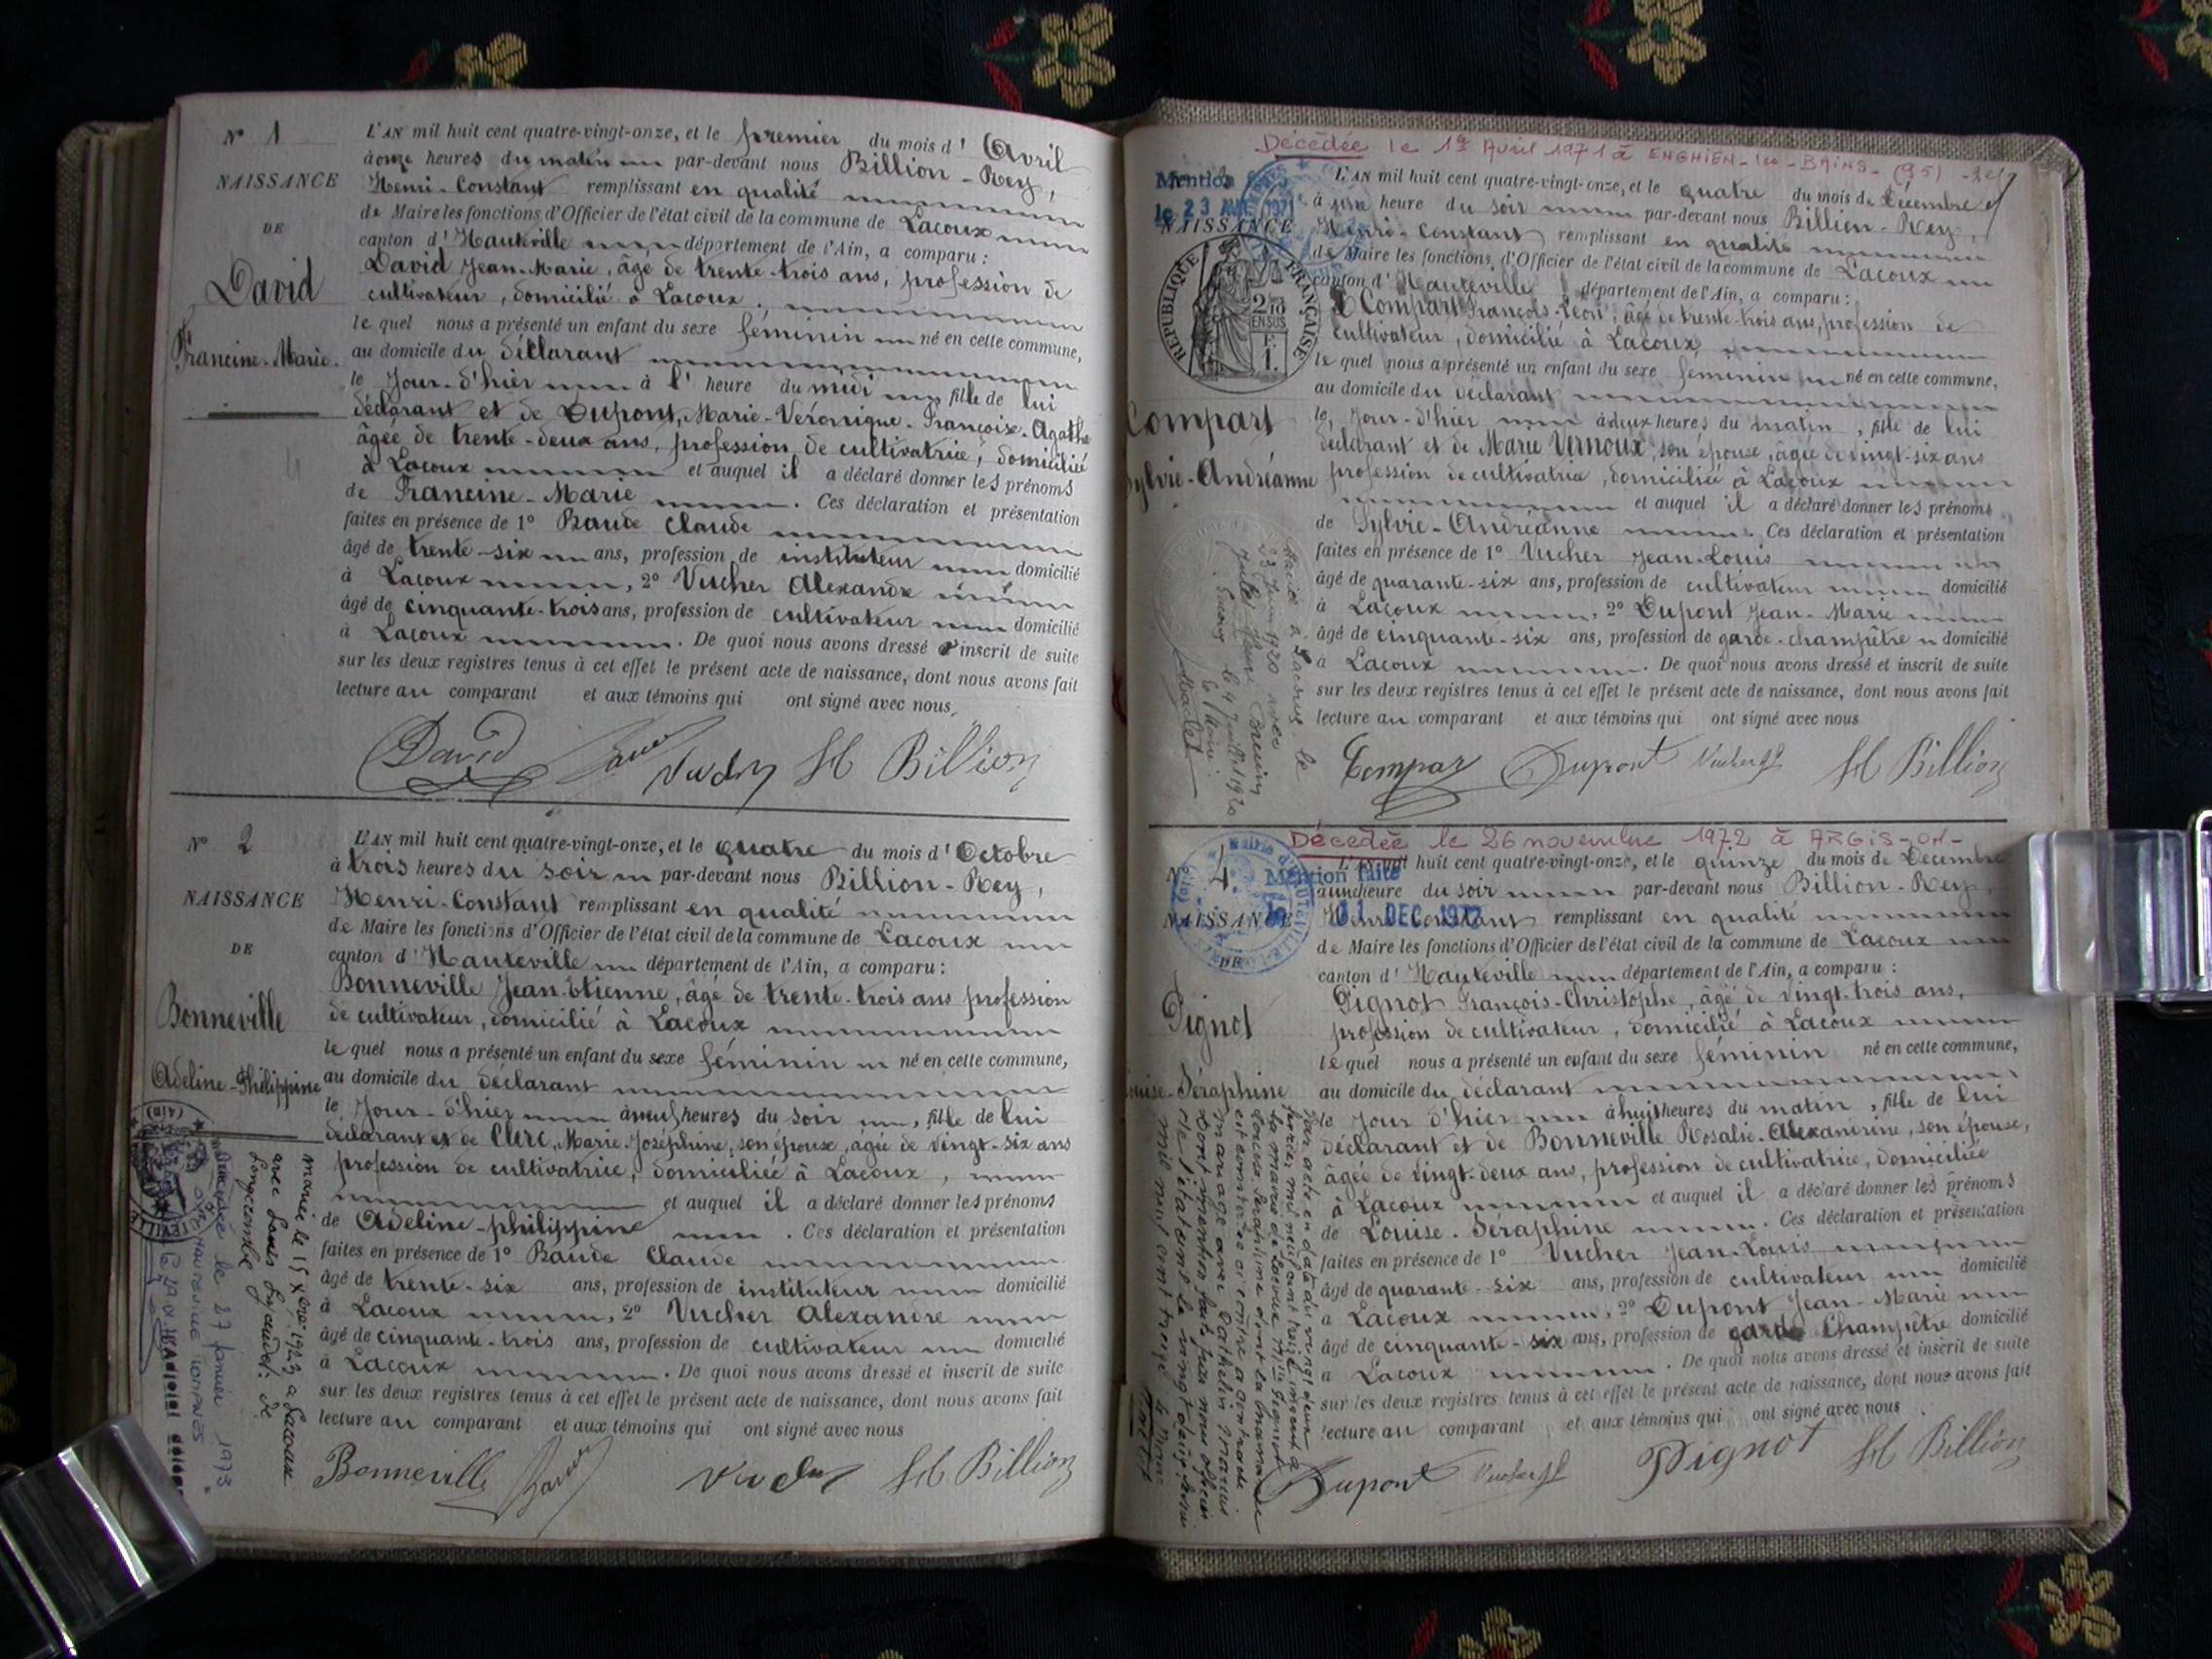 N° 1
NAISSANCE
DE
David
Francine-Marie.
L'AN mil huit cent quatre-vingt-onze, et le premier du mois d'Avril
à onze heures du matin par-devant nous Billion-Rey,
Henri-Constant remplissant en qualité
de Maire les fonctions d'Officier de l'état civil de la commune de Lacoux
canton d'Hauteville département de l'Ain, a comparu :
David Jean-Marie, âgé de trente-trois ans, profession de
cultivateur, domicilié à Lacoux.
le quel nous a présenté un enfant du sexe féminin né en cette commune,
au domicile du déclarant
le Jour-d'hier à l'heure du midi fille de lui
déclarant et de Dupont, Marie-Véronique-Françoise-Agathe
âgée de trente-deux ans, profession de cultivatrice, domicilié
à Lacoux et auquel il a déclaré donner les prénoms
de Francine-Marie. Ces déclaration et présentation
faites en présence de 1° Baude Claude
âgé de trente-six ans, profession de instituteur domicilié
à Lacoux, 2° Vucher Alexandre
âgé de cinquante-trois ans, profession de cultivateur domicilié
à Lacoux. De quoi nous avons dressé inscrit de suite
sur les deux registres tenus à cet effet le présent acte de naissance, dont nous avons fait
lecture au comparant et aux témoins qui ont signé avec nous,
David Vucher H Billion
N° 2
NAISSANCE
DE
Bonneville
Adeline-Philippine
L'AN mil huit cent quatre-vingt-onze, et le quatre du mois d'Octobre
à trois heures du soir par-devant nous Billion-Rey,
Henri-Constant remplissant en qualité
de Maire les fonctions d'Officier de l'état civil de la commune de Lacoux
canton d'Hauteville département de l'Ain, a comparu :
Bonneville Jean-Etienne, âgé de trente-trois ans profession
de cultivateur, domicilié à Lacoux
le quel nous a présenté un enfant du sexe féminin né en cette commune,
au domicile du déclarant
le Jour-d'hier à neuf heures du soir, fille de lui
déclarant et de Clerc, Marie-Joséphine, son épouse, âgée de vingt-six ans
profession de cultivatrice, domiciliée à Lacoux,
et auquel il a déclaré donner les prénoms
de Adeline-philippine. Ces déclaration et présentation
faites en présence de 1° Baude Claude
âgé de trente-six ans, profession de instituteur domicilié
à Lacoux, 2° Vucher Alexandre
âgé de cinquante-trois ans, profession de cultivateur domicilié
à Lacoux. De quoi nous avons dressé et inscrit de suite
sur les deux registres tenus à cet effet le présent acte de naissance, dont nous avons fait
lecture au comparant et aux témoins qui ont signé avec nous
Bonneville H Billion
mariée le 15 Xbre 1923 a Lacoux
avec Louis
Longecombe
le 27 janvier 1973
Décédée le 1er Avril 1971 à ENGHIEN-les-BAINS-(95)
Mention
le 23
NAISSANCE
REPUBLIQUE FRANÇAISE
Compart
Sylvie-Andréanne
L'AN mil huit cent quatre-vingt-onze, et le quatre du mois de Décembre
à une heure du soir par-devant nous Billion-Rey,
Henri-Constant remplissant en qualité
de Maire les fonctions d'Officier de l'état civil de la commune de Lacoux
canton d'Hauteville département de l'Ain, a comparu :
Compart François-Léon, âgé de trente-trois ans, profession de
cultivateur, domicilié à Lacoux,
le quel nous a présenté un enfant du sexe féminin né en cette commune,
au domicile du déclarant
le Jour-d'hier à deux heures du matin, fille de lui
déclarant et de Marie Vernoux son épouse, âgée de vingt-six ans
profession de cultivatrice, domiciliée à Lacoux
et auquel il a déclaré donner les prénoms
de Sylvie-Andréanne. Ces déclaration et présentation
faites en présence de 1° Vucher Jean-Louis
âgé de quarante-six ans, profession de cultivateur domicilié
à Lacoux, 2° Dupont Jean-Marie
âgé de cinquante-six ans, profession de garde-champêtre domicilié
à Lacoux. De quoi nous avons dressé et inscrit de suite
sur les deux registres tenus à cet effet le présent acte de naissance, dont nous avons fait
lecture au comparant et aux témoins qui ont signé avec nous
Compar Dupont Vucher H Billion
Décédée le 26 novembre 1972 à ARGIS-01-
N° 4
Mention faite
11 DEC 1972
NAISSANCE
DE
Pignot
Louise-Séraphine
L'AN mil huit cent quatre-vingt-onze, et le quinze du mois de Décembre
à une heure du soir par-devant nous Billion-Rey,
Henri-Constant remplissant en qualité
de Maire les fonctions d'Officier de l'état civil de la commune de Lacoux
canton d'Hauteville département de l'Ain, a comparu :
Pignot François-Christophe, âgé de vingt-trois ans,
profession de cultivateur, domicilié à Lacoux
le quel nous a présenté un enfant du sexe féminin né en cette commune,
au domicile du déclarant
le Jour d'hier à huit heures du matin, fille de lui
déclarant et de Bonneville Rosalie-Alexandrine, son épouse,
âgée de vingt-deux ans, profession de cultivatrice, domiciliée
à Lacoux et auquel il a déclaré donner les prénoms
de Louise-Seraphine. Ces déclaration et présentation
faites en présence de 1° Vucher Jean-Louis
âgé de quarante-six ans, profession de cultivateur domicilié
à Lacoux, 2° Dupont Jean-Marie
âgé de cinquante-six ans, profession de garde Champêtre domicilié
à Lacoux. De quoi nous avons dressé et inscrit de suite
sur les deux registres tenus à cet effet le présent acte de naissance, dont nous avons fait
lecture au comparant et aux témoins qui ont signé avec nous
Dupont Vucher Pignot H Billion